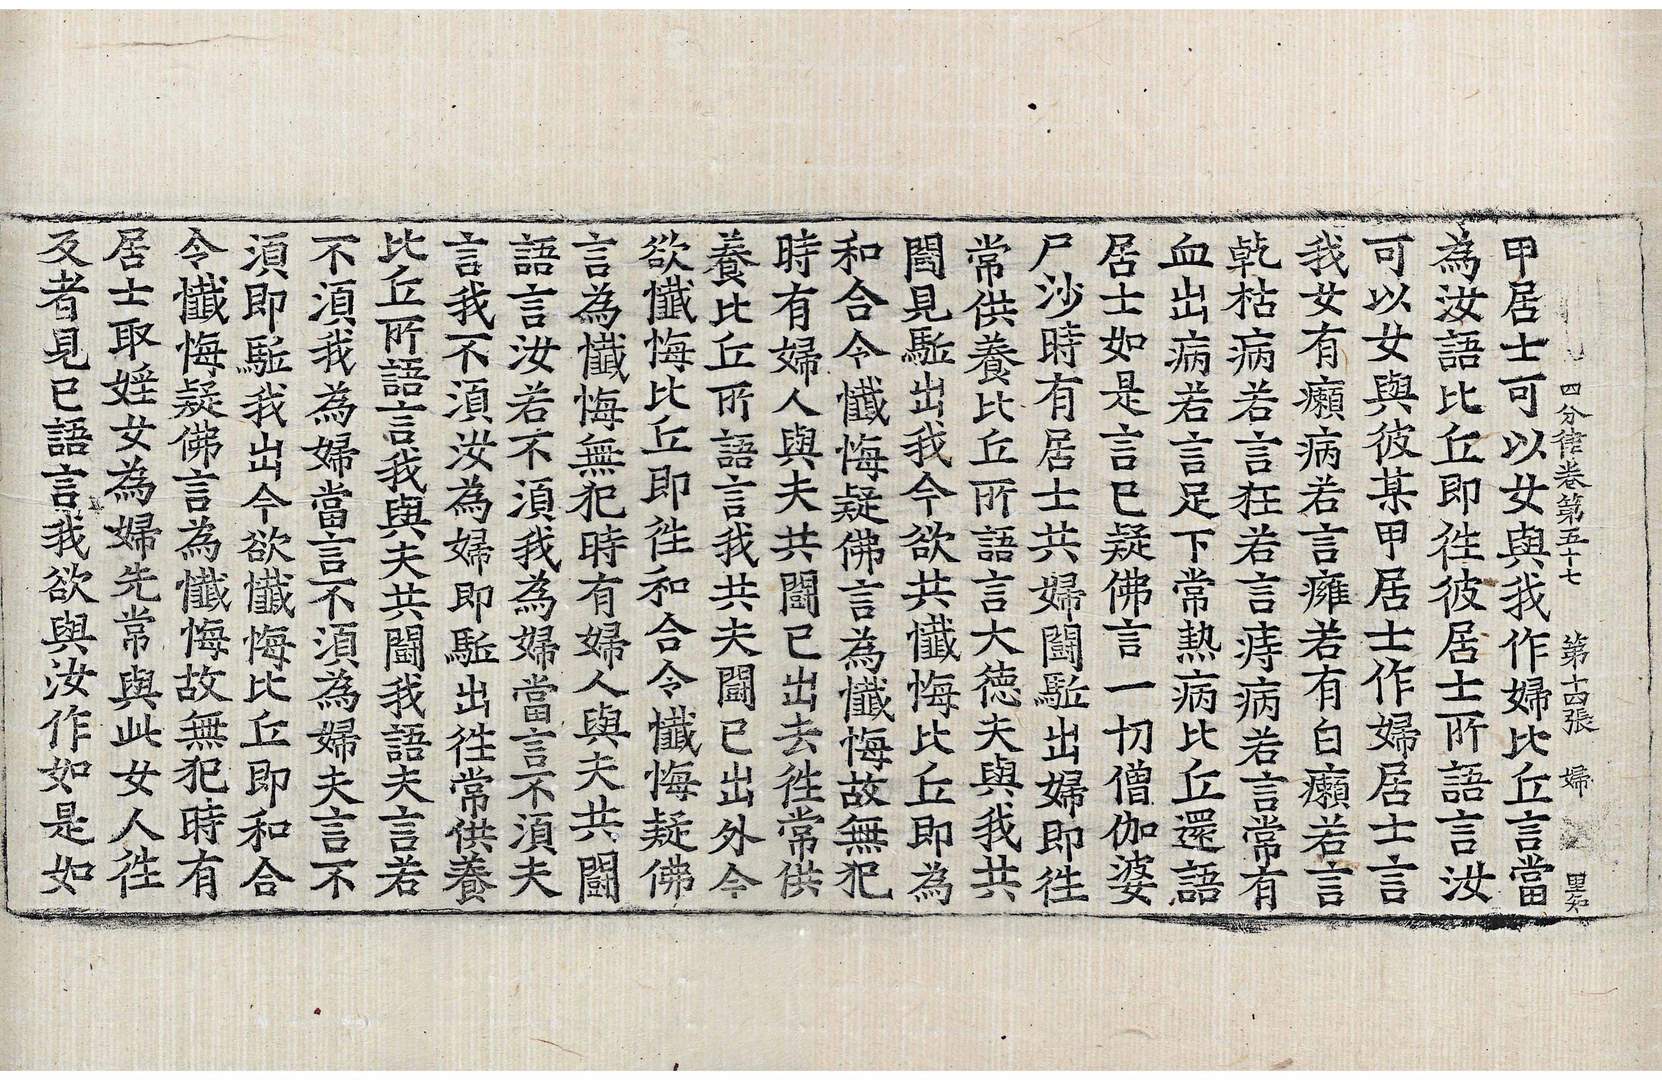 四分律卷第五十七 第十四張 婦 里知
甲居士可以女與我作婦比丘言當
為汝語比丘即往彼居士所語言汝
可以女與彼某甲居士作婦居士言
我女有癩病若言癰若有白癩若言
乾枯病若言狂若言痔病若言常有
血出病若言足下常熱病比丘還語
居士如是言已疑佛言一切僧伽婆
尸沙時有居士共婦鬪駈出婦即往
常供養比丘所語言大德夫與我共
鬪見駈出我今欲共懺悔比丘即為
和合令懺悔疑佛言為懺悔故無犯
時有婦人與夫共鬪已出去往常供
養比丘所語言我共夫鬪已出外今
欲懺悔比丘即往和合令懺悔疑佛
言為懺悔無犯時有婦人與夫共鬪
語言汝若不須我為婦當言不須夫
言我不須汝為婦即駈出往常供養
比丘所語言我與夫共鬪我語夫言若
不須我為婦當言不須為婦夫言不
須即駈我出今欲懺悔比丘即和合
令懺悔疑佛言為懺悔故無犯時有
居士取婬女為婦先常與此女人往
反者見已語言我欲與汝作如是如